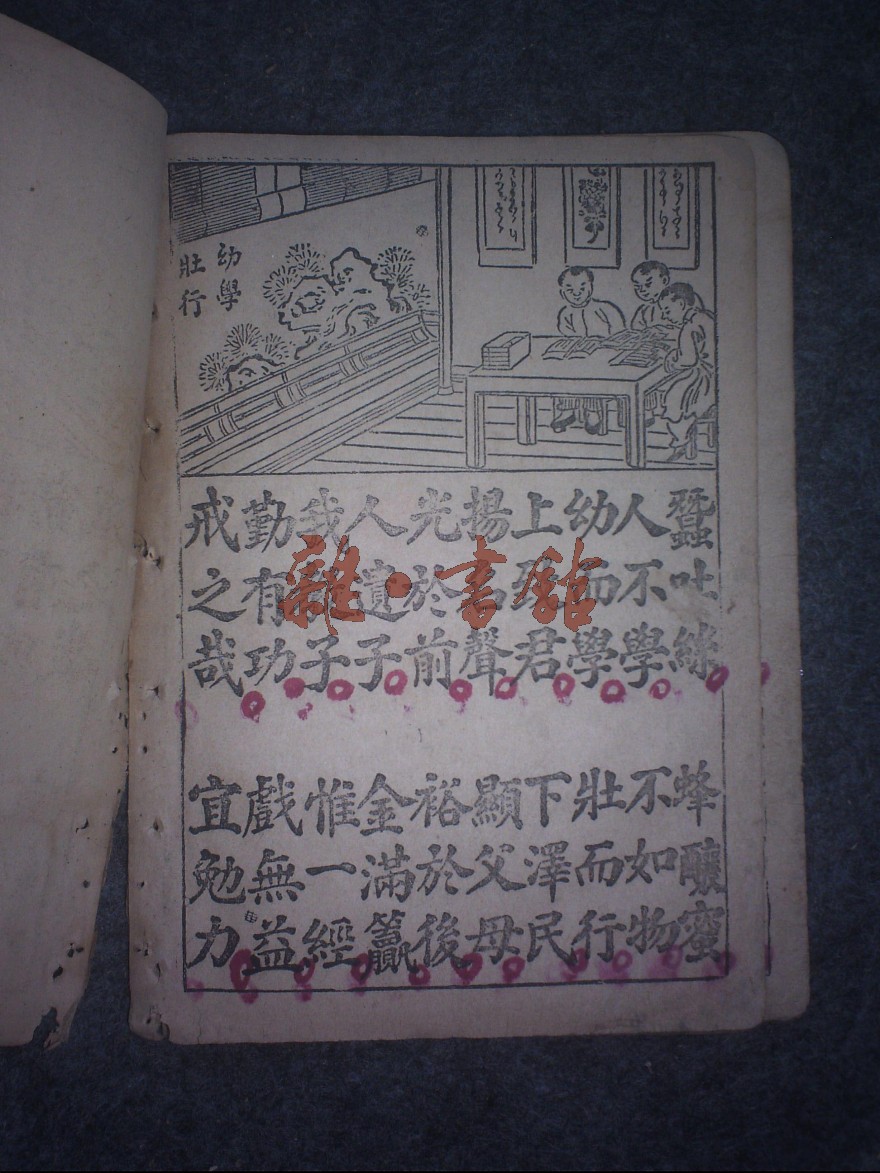 幼學
壯行
蠶吐絲 蜂釀蜜
人不學 不如物
幼而學 壯而行
上致君 下澤民
揚名聲 顯父母
光於前 裕於後
人遺子 金滿籯
我教子 惟一經
勤有功 戲無益
戒之哉 宜勉力
雜·書館